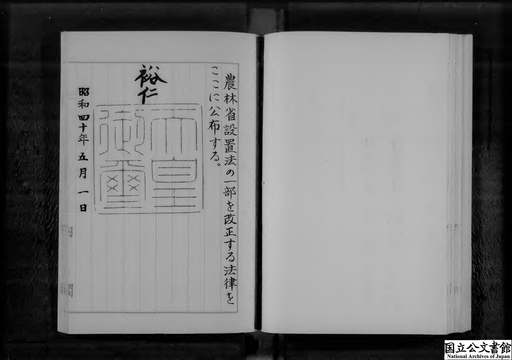 農林省設置法の一部を改正する法律を
ここに公布する。
裕仁
天皇
御璽
昭和四十年五月一日
国立公文書館
National Archives of Japan